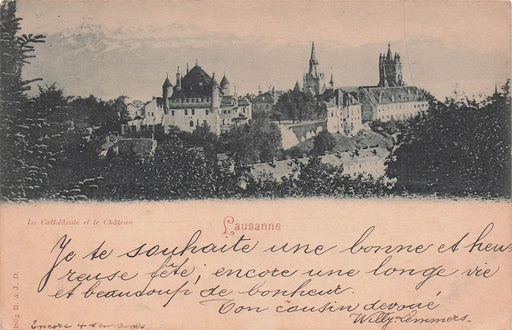 La Cathédrale et le Château
Lausanne
Je te souhaite une bonne et heu-
reuse fête; encore une longe vie
et beaucoup de bonheur.
Ton cousin devoué
Willy Lemmers.
Encore